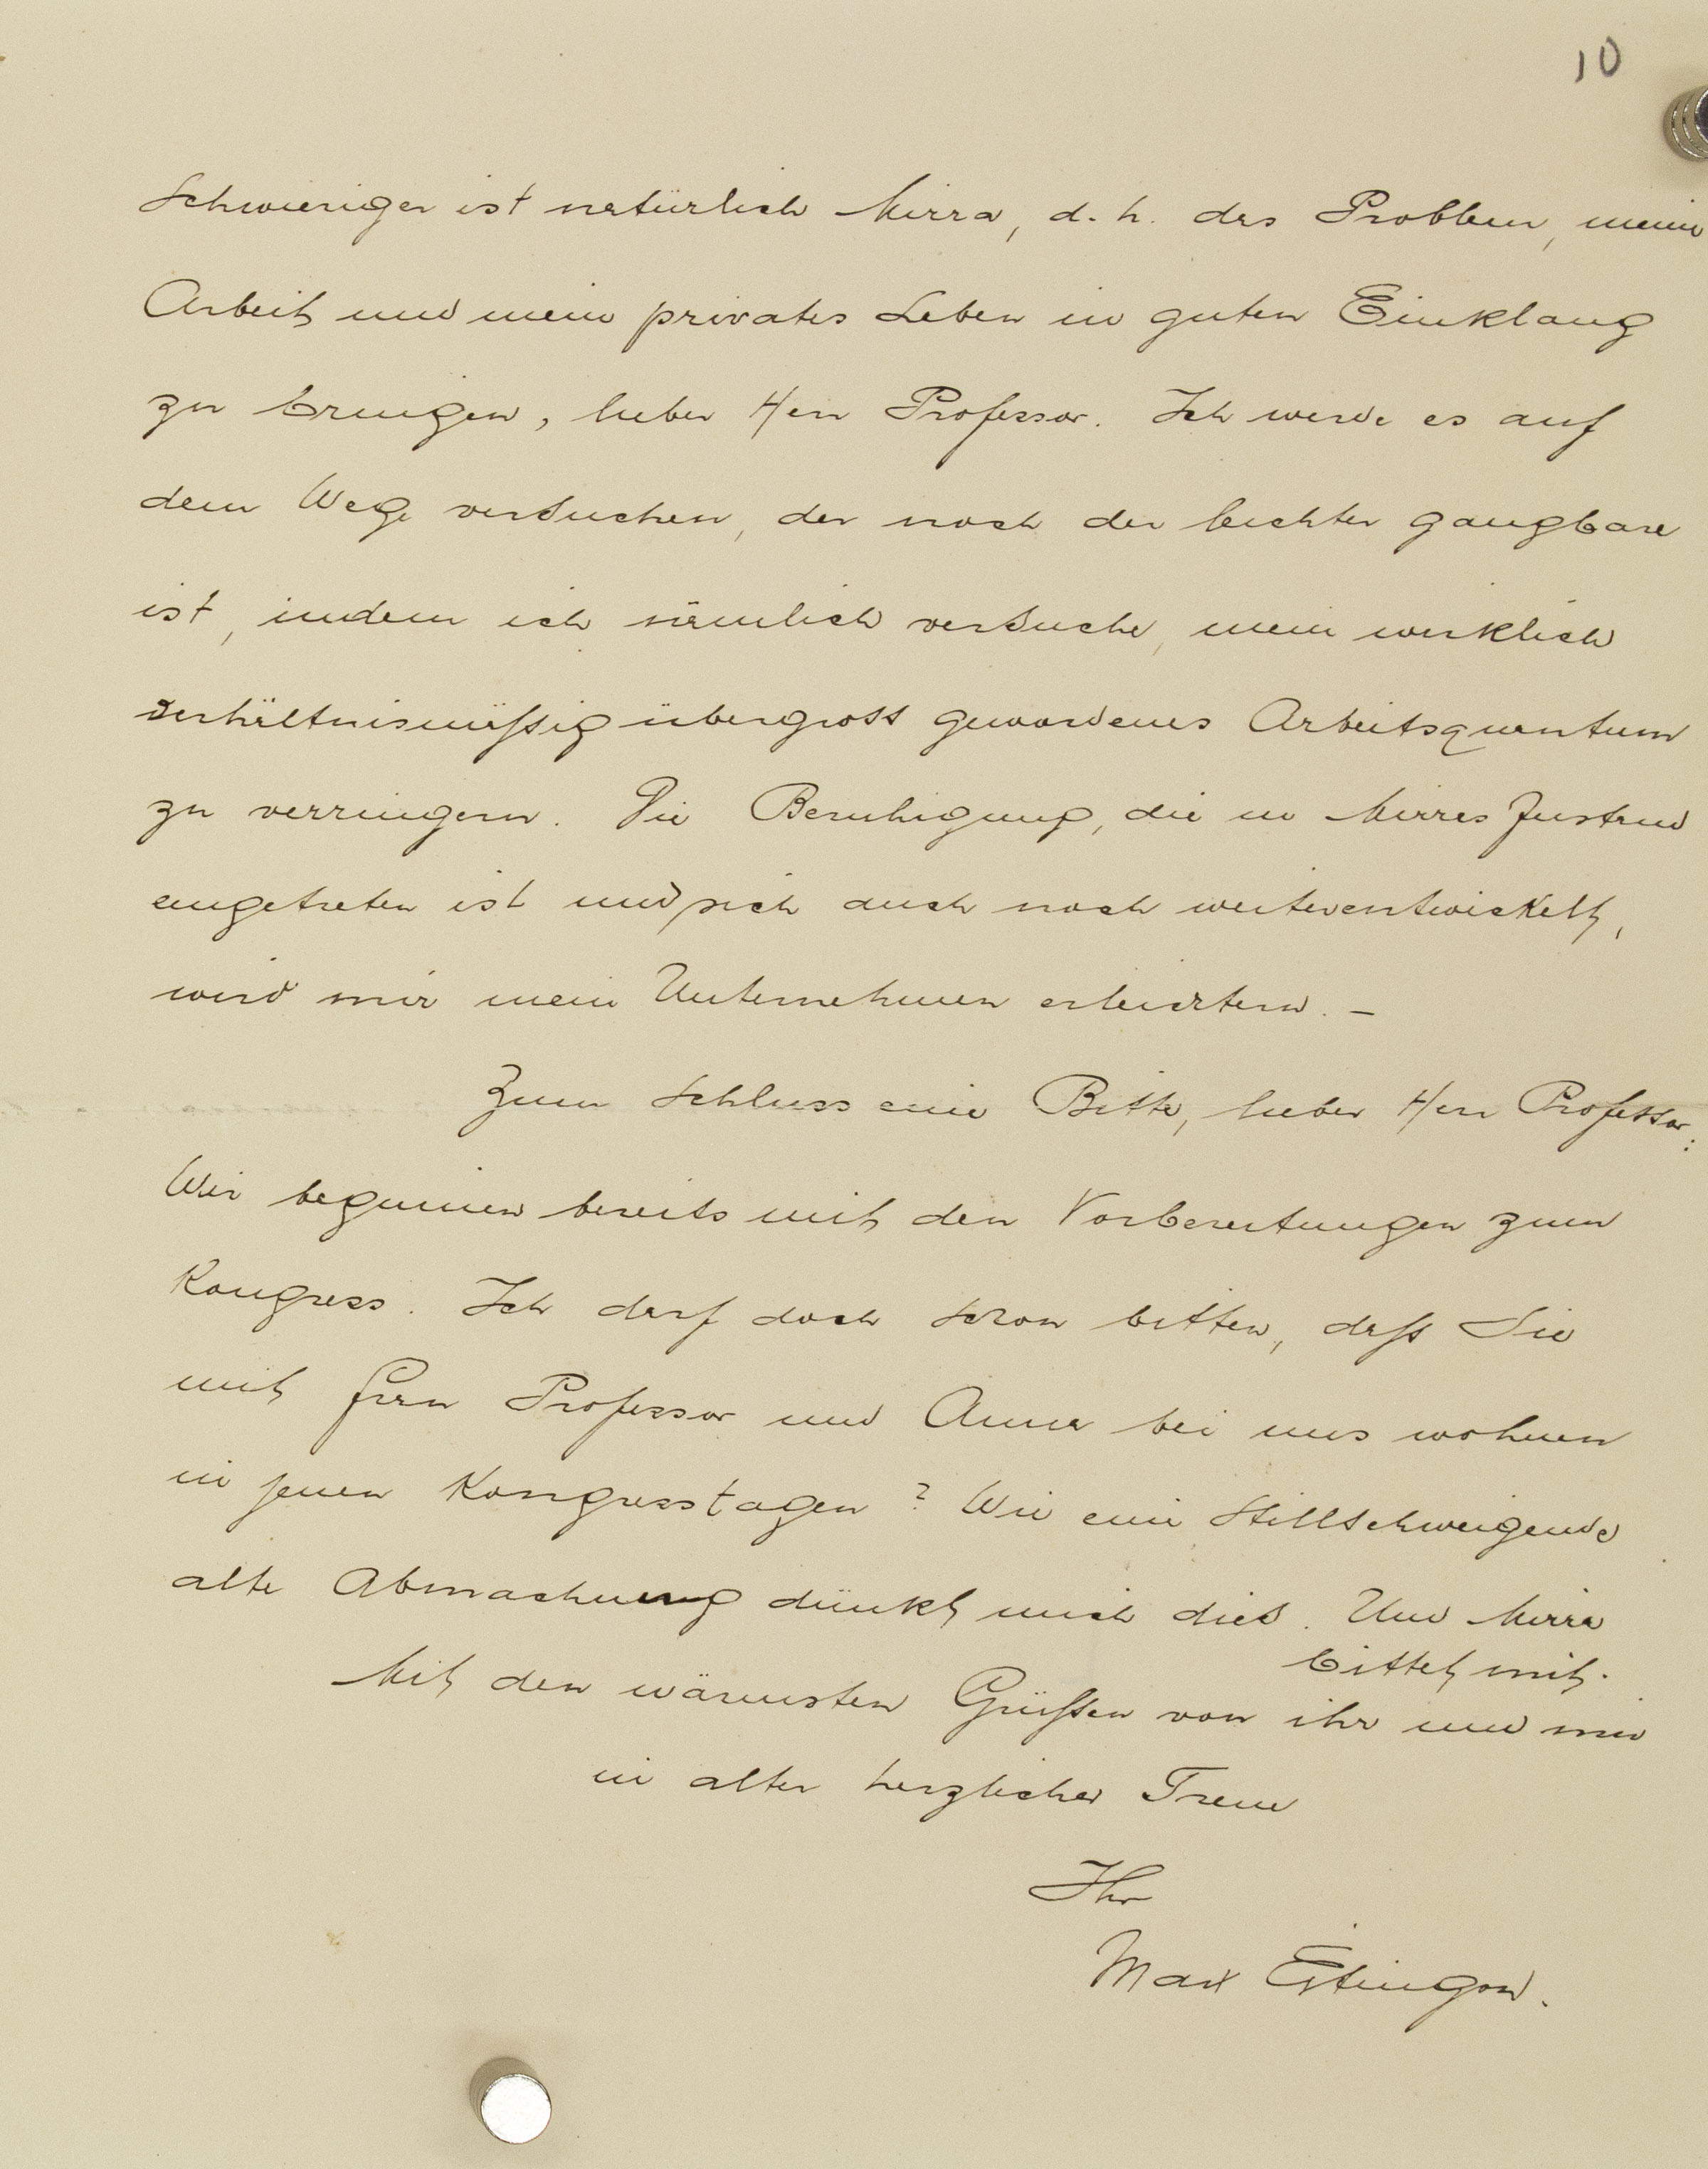 10
Schwieriger ist natürlich Mirra, d. h. das Problem, meine
Arbeit und mein privates Leben in guten Einklang
zu bringen, lieber Herr Professor. Ich werde es auf
dem Wege versuchen, der noch der leichter gangbare
ist, indem ich nämlich versuche, mein wirklich
verhältnismäßig übergross gewordenes Arbeitsquantum
zu verringern. Die Beruhigung, die in Mirras Zustand
eingetreten ist und sich auch noch weiterentwickelt,
wird mir mein Unternehmen erleichtern. –
Zum Schluss eine Bitte, lieber Herr Professor:
Wir beginnen bereits mit den Vorbereitungen zum
Kongress. Ich darf doch schon bitten, daß Sie
mit Frau Professor und Anna bei uns wohnen
in jenen Kongresstagen? Wie eine stillschweigende
alte Abmachung dünkt mich dies. Und Mirra
bittet mit.
Mit den wärmsten Grüßen von ihr und mir
in alter herzlicher Treue
Ihr
Max Eitingon.